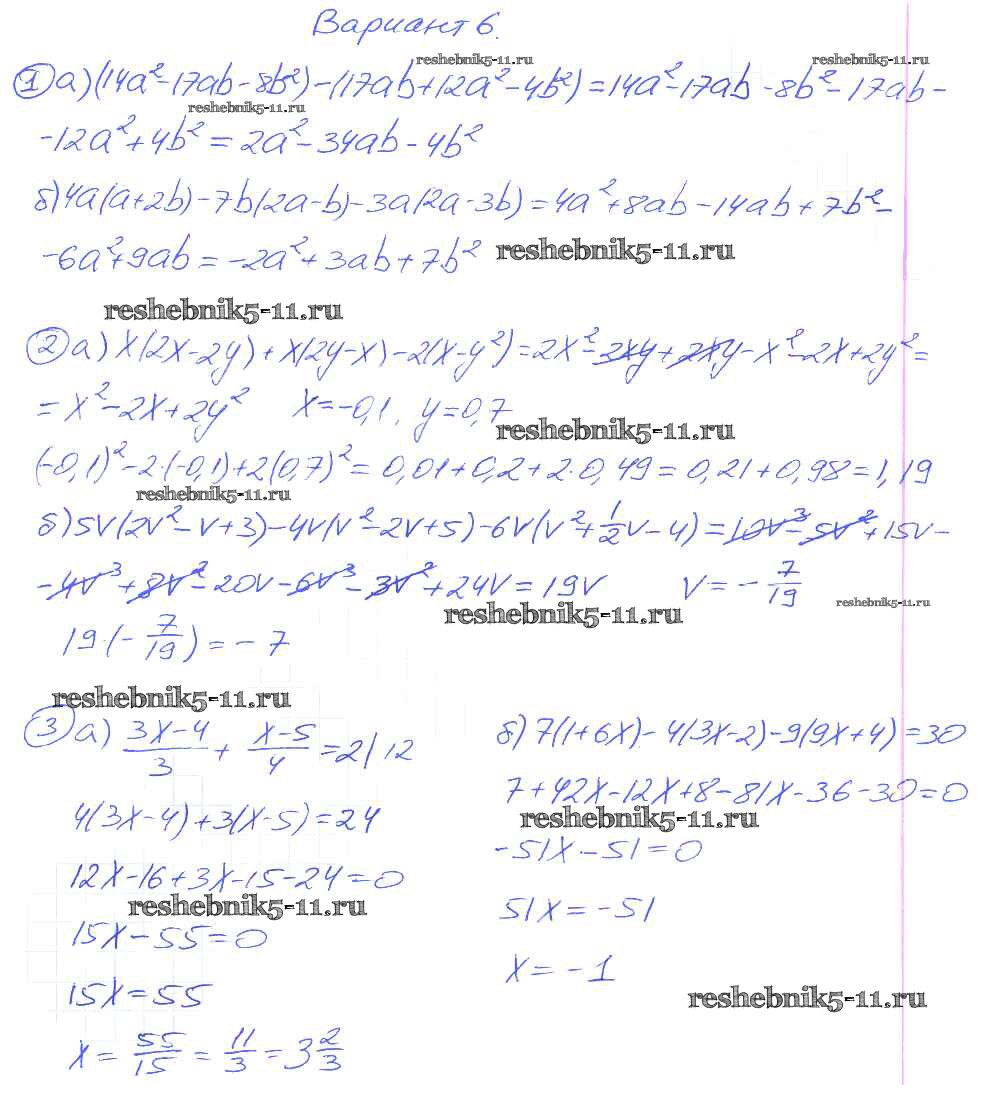 Вариант 6.
reshebnik5-11.ru reshebnik5-11.ru
① а) (14a²-17ab-8b²)-(17ab+12a²-4b²)=14a²-17ab-8b²-17ab-
reshebnik5-11.ru
-12a²+4b²=2a²-34ab-4b²
б) 4a(a+2b)-7b(2a-b)-3a(2a-3b)=4a²+8ab-14ab+7b²-
-6a²+9ab=-2a²+3ab+7b² reshebnik5-11.ru
reshebnik5-11.ru
② а) x(2x-2y)+x(2y-x)-2(x-y²)=2x²-2xy+2xy-x²-2x+2y²=
=x²-2x+2y² x=-0,1, y=0,7
reshebnik5-11.ru
(-0,1)²-2·(-0,1)+2(0,7)²=0,01+0,2+2·0,49=0,21+0,98=1,19
reshebnik5-11.ru
б) 5v(2v²-v+3)-4v(v²-2v+5)-6v(v²+1/2v-4)=10v³-5v²+15v-
-4v³+8v²-20v-6v³-3v²+24v=19v v=-7/19
reshebnik5-11.ru reshebnik5-11.ru
19·(-7/19)=-7
reshebnik5-11.ru
③ а) (3x-4)/3+(x-5)/4=2|12
4(3x-4)+3(x-5)=24
12x-16+3x-15-24=0
reshebnik5-11.ru
15x-55=0
15x=55
x=55/15=11/3=3 2/3
б) 7(1+6x)-4(3x-2)-9(9x+4)=30
7+42x-12x+8-81x-36-30=0
reshebnik5-11.ru
-51x-51=0
51x=-51
x=-1
reshebnik5-11.ru